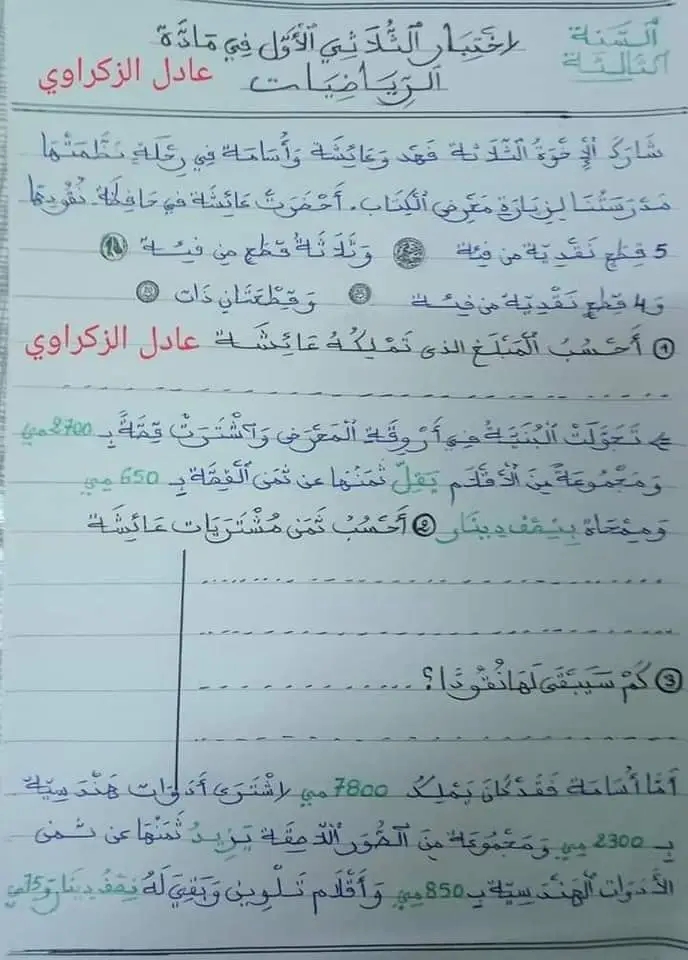 السَّنَة الثالِثَة
اخْتِبَار الثُّلَاثي الأَوَّل في مَادَّة
الرِّيَاضِيَات
عادل الزكراوي
شَارَكَ الإِخْوَةُ الثَّلَاثَة فَهْد وَعَائِشَة وَأُسَامَة فِي رِحْلَة نَظَّمَتْهَا
مَدْرَسَتُنَا لِزِيَارَةِ مَعْرِضِ الْكِتَاب. أَحْضَرَتْ عَائِشَة فِي حَافِظَة نُقُودِهَا
5 قِطَعٍ نَقْدِيَّة مِن فِئَة وَثَلَاثَةُ قِطَعٍ مِن فِئَة
وَ4 قِطَعٍ نَقْدِيَّة مِن فِئَة وَقِطْعَتَانِ ذَات
① أَحْسُبُ الْمَبْلَغَ الذي تَمْلِكُهُ عَائِشَة عادل الزكراوي
تَجَوَّلَتْ الْبُنَيَّةُ فِي أَرْوِقَةِ الْمَعْرَضِ وَاشْتَرَتْ قِصَّةً بِـ 2700 مي
وَمَجْمُوعَةً مِنَ الْأَقْلَامِ يَقِلُّ ثَمَنُهَا عن ثَمَنِ الْقِصَّةِ بِـ 650 مي
وَمِمْحَاة بِنِصْف دِينَار ② أَحْسُبُ ثَمَن مُشْتَرَيَات عَائِشَة
③ كَمْ سَيَبْقَى لَهَا نُقُودًا؟
أَمَّا أُسَامَة فَقَدْ كَانَ يَمْلِكُ 7800 مي اشْتَرَى أَدَوَات هَنْدَسِيَّة
بِـ 2300 مي وَمَجْمُوعَة مِنَ الصُّوَرِ اللَّاصِقَة يَزِيدُ ثَمَنُهَا عن ثَمَنِ
الأَدَوَات الْهَنْدَسِيَّة بِـ 850 مي وَأَقْلَام تَلْوِينٍ وَبَقِيَ لَهُ نِصْفُ دِينَار وَ75 مي